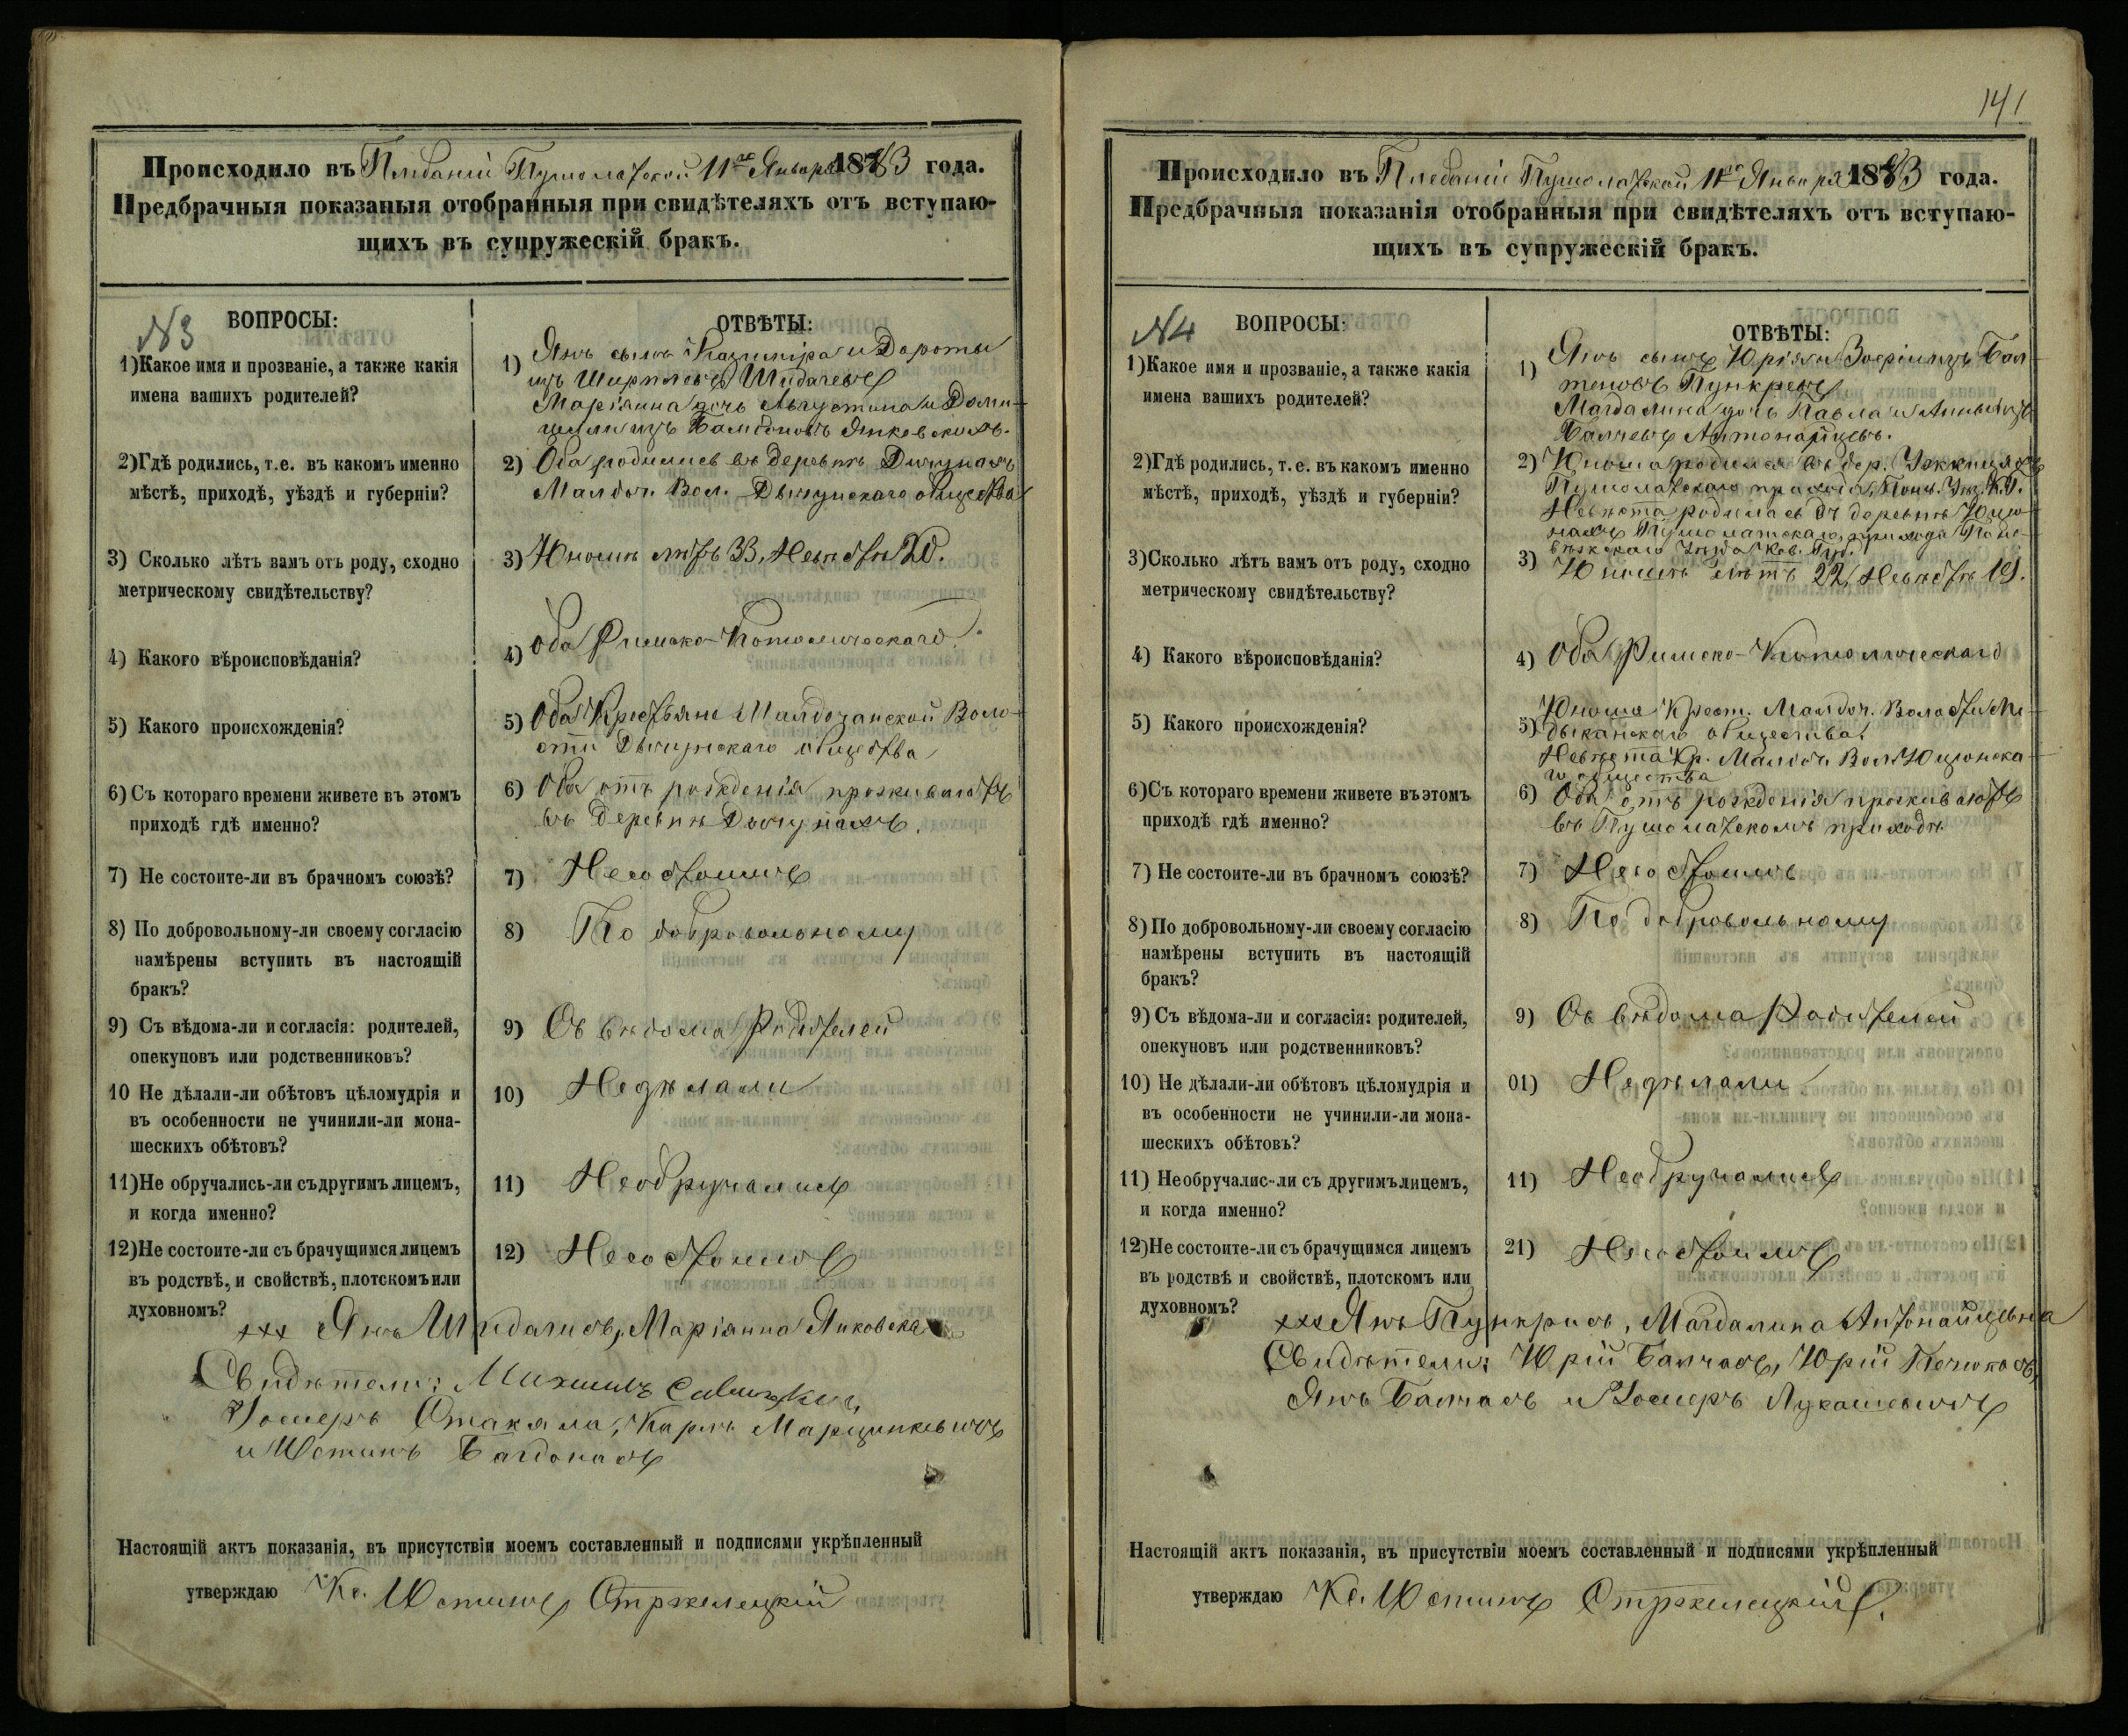 Происходило въ Плебаніи Пушолатской 11го Января 1883 года.
Предбрачныя показаныя отобранныя при свидѣтеляхъ отъ вступаю-
щихъ въ супружескій бракъ.
N3
ВОПРОСЫ:
ОТВѢТЫ:
1)Какое имя и прозваніе, а также какія
имена вашихъ родителей?
1) Янъ сынъ Казимира и Дороты
изъ
Маріянна дочь Августина и Доми-
изъ
2)Гдѣ родились, т.е. въ какомъ именно
мѣстѣ, приходѣ, уѣздѣ и губерніи?
2) Оба родились въ деревнѣ
Вол. общества
3) Сколько лѣтъ вамъ отъ роду, сходно
метрическому свидѣтельству?
3) Юношѣ лѣтъ 33, Невѣстѣ 20.
4) Какого вѣроисповѣданія?
4) Оба Римско-Католическаго.
5) Какого происхожденія?
5) Оба Крестьяне Воло-
сти общества
6) Съ котораго времени живете въ этомъ
приходѣ гдѣ именно?
6) Оба отъ рожденія проживаютъ
въ деревнѣ
7) Не состоите-ли въ брачномъ союзѣ?
7) Несостоимъ
8) По добровольному-ли своему согласію
намѣрены вступить въ настоящій
бракъ?
8) По добровольному
9) Съ вѣдома-ли и согласія: родителей,
опекуновъ или родственниковъ?
9) Съ вѣдома Родителей
10 Не дѣлали-ли обѣтовъ цѣломудрія и
въ особенности не учинили-ли мона-
шескихъ обѣтовъ?
10) Недѣлали
11)Не обручались-ли съ другимъ лицемъ,
и когда именно?
11) Необручались
12)Не состоите-ли съ брачущимся лицемъ
въ родствѣ, и свойствѣ, плотскомъ или
духовномъ?
12) Несостоимъ
xxx Янъ Маріанна Янковска
Свидѣтели: Михаилъ
Карлъ Марцинкевичъ
и Юстинъ Багдонасъ
Настоящій актъ показанія, въ присутствіи моемъ составленный и подписями укрѣпленный
утверждаю Кс. Юстинъ Стржелецкій
141
Происходило въ Плебаніи Пушолатской 11го Января 1883 года.
Предбрачныя показанія отобранныя при свидѣтеляхъ отъ вступаю-
щихъ въ супружескій бракъ.
N4
ВОПРОСЫ:
ОТВѢТЫ:
1)Какое имя и прозваніе, а также какія
имена вашихъ родителей?
1) Янъ сынъ Юрія и изъ
Магдалина дочь Павла и Анны изъ
2)Гдѣ родились, т. е. въ какомъ именно
мѣстѣ, приходѣ, уѣздѣ и губерніи?
2) Юноша родился въ дер.
Пушолатскаго прихода, Пон. Уѣз. К. Г.
Невѣста родилась въ деревнѣ
Пушолатскаго прихода Поне-
вѣжскаго Уѣзда Ков. Губ.
3)Сколько лѣтъ вамъ отъ роду, сходно
метрическому свидѣтельству?
3) Юношѣ лѣтъ 22, Невѣстѣ 19.
4) Какого вѣроисповѣданія?
4) Оба Римско-Католическаго
5) Какого происхожденія?
5) Юноша Крест. Волости
общества,
Невѣста Кр. Вол.
общества
6)Съ котораго времени живете въ этомъ
приходѣ гдѣ именно?
6) Оба отъ рожденія проживаютъ
въ Пушолатскомъ приходѣ
7) Не состоите-ли въ брачномъ союзѣ?
7) Несостоимъ
8) По добровольному-ли своему согласію
намѣрены вступить въ настоящій
бракъ?
8) По добровольному
9) Съ вѣдома-ли и согласія: родителей,
опекуновъ или родственниковъ?
9) Съ вѣдома Родителей
10) Не дѣлали-ли обѣтовъ цѣломудрія и
въ особенности не учинили-ли мона-
шескихъ обѣтовъ?
01) Недѣлали
11) Необручалис-ли съ другимъ лицемъ,
и когда именно?
11) Необручались
12)Не состоите-ли съ брачущимся лицемъ
въ родствѣ и свойствѣ, плотскомъ или
духовномъ?
21) Несостоимъ
xxx Янъ Магдалина
Свидѣтели: Юрій Балчасъ, Юрій
Янъ Балчасъ и Лукашевичъ
Настоящій актъ показанія, въ присутствіи моемъ составленный и подписями укрѣпленный
утверждаю Кс. Юстинъ Стржелецкій